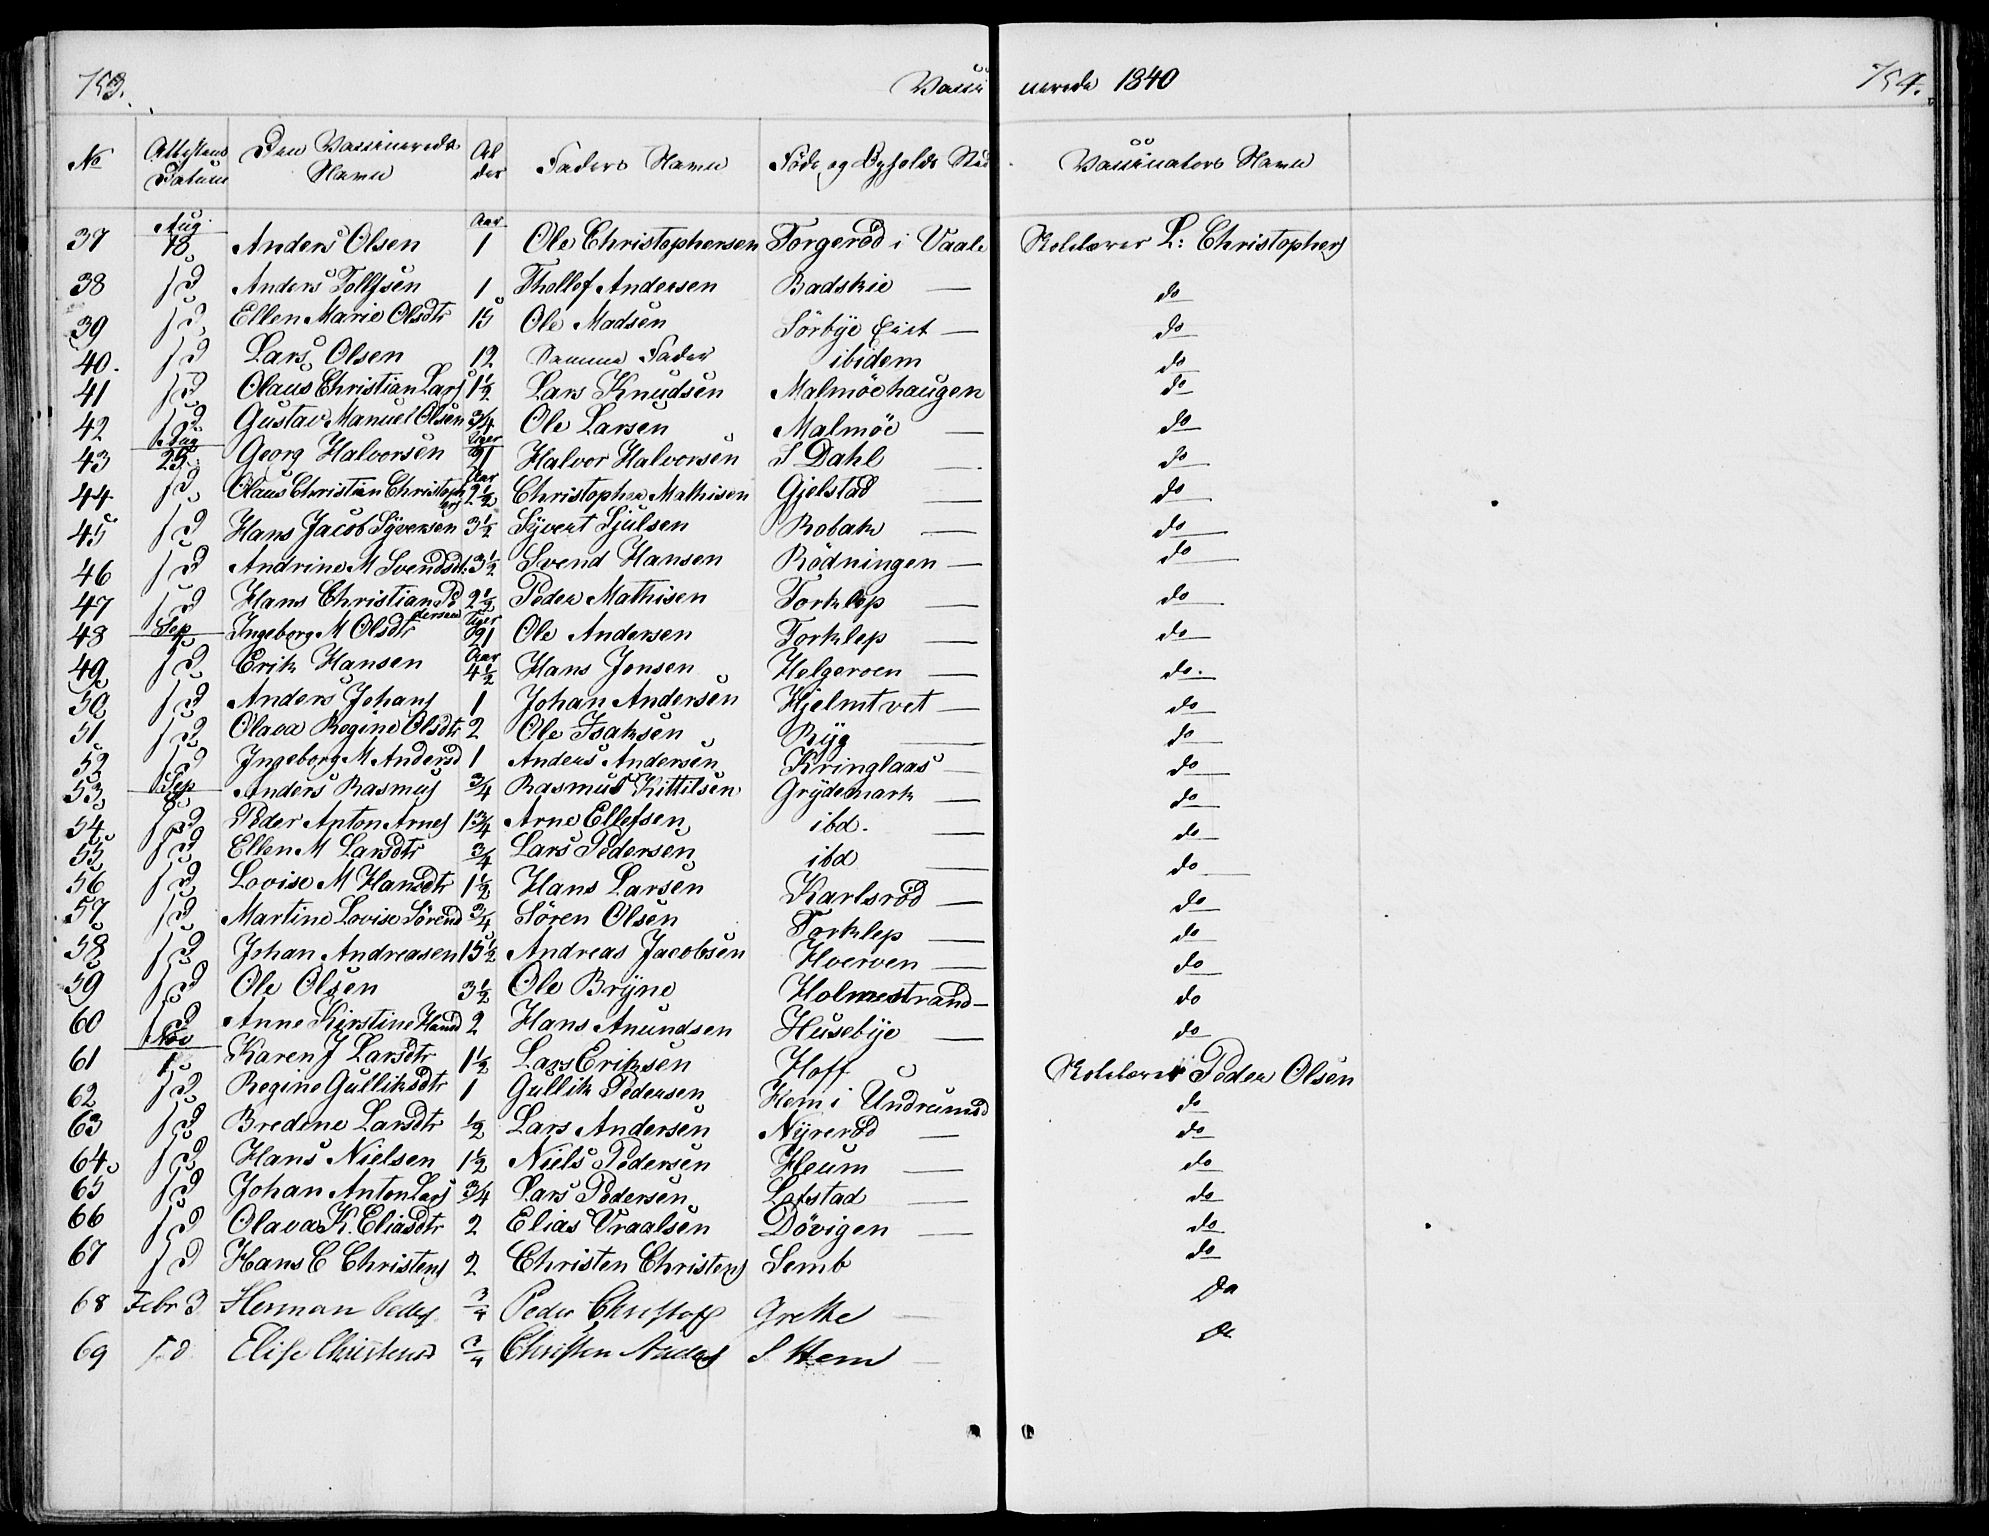 753. Vacci nerede 1840 754.
No Attestens Datum Den Vaccineredes Navn Al der Faders Navn Føde og Opholds Sted Vaccinators Navn
37 Aug 18 Anders Olsen Aar 1 Ole Christophersen Torgeröd i Vaale Skolelærer L: Christophers
38 s d Anders Tollfsen 1 Thollef Andersen Badskie — do
39 s d Ellen Marie Olsdtr 15 Ole Madsen Sörbye Eiet — do
40. s d Lars Olsen 12 Samme Fader ibidem do
41 s d Olaus Christian Lars 1½ Lars Knudsen Malmöehaugen do
42 s d Gustav Manuel Olsen 3/4 Ole Larsen Malmöe — do
43 Aug 25 Georg Halvorsen Uger 21 Halvor Halvorsen S Dahl — do
44 s d Olaus Christian Christoph ers Aar 2½ Christopher Mathisen Gjelstad — do
45 s d Hans Jacob Syversen 3½ Syvert Sjulsen Robak — do
46 s d Andrine M Svendsdt. 3½ Svend Hansen Rödningen — do
47 s d Hans Christian Pe dersen 2½ Peder Mathisen Torklep — do
48 Sep Ingeborg M Olsdtr Uger 21 Ole Andersen Torklep — do
49 s d Erik Hansen Aar 4½ Hans Jensen Helgeroen — do.
50 s d Anders Johans 1 Johan Andersen Hjelmtvet — do
51 s d Olava Regine Olsdtr 2 Ole Isaksen Ryg — do
52 s d Ingeborg M Andersd 1 Anders Andersen Kringlaas — do
53 Sep 8 Anders Rasmus 3/4 Rasmus Kittilsen Grydemark — do
54 s d Peder Anton Arnes 1 3/4 Arne Ellefsen ibd. — do
55 s d Ellen M Larsdtr 3/4 Lars Pedersen ibd — do
56 s d Lovise M Hansdtr 1½ Hans Larsen Karlsröd — do
57 s d Martine Lovise Sörensd 3/4 Sören Olsen Torklep — do
58 s d Johan Andreasen 15½ Andreas Jacobsen Hverven — do
59 s d Ole Olsen 3½ Ole Bryne Holmestrand — do
60 s d Anne Kirstine Hansd 2 Hans Anundsen Husebye — do
61 Nov 1 Karen J Larsdtr 1½ Lars Eriksen Hoff Skolelærer Peder Olsen
62 s d Regine Gulliksdtr 1 Gullik Pedersen Hem i Undrumsd do
63 s d Bredine Larsdtr ½ Lars Andersen Nyreröd — do
64 s d Hans Nielsen 1½ Niels Pedersen Heum — do
65 s d Johan Anton Lars 3/4 Lars Pedersen Lofstad — do
66 s d Olava K. Eliasdtr 2 Elias Vraalsen Dövigen — do
67 s d Hans C Christens 2 Christen Christens Semb do
68 Febr 3 Herman Peders 3/4 Peder Christoff Grette — Do
69 s d Elise Christensd 3/4 Christen Anders S Hem — Do